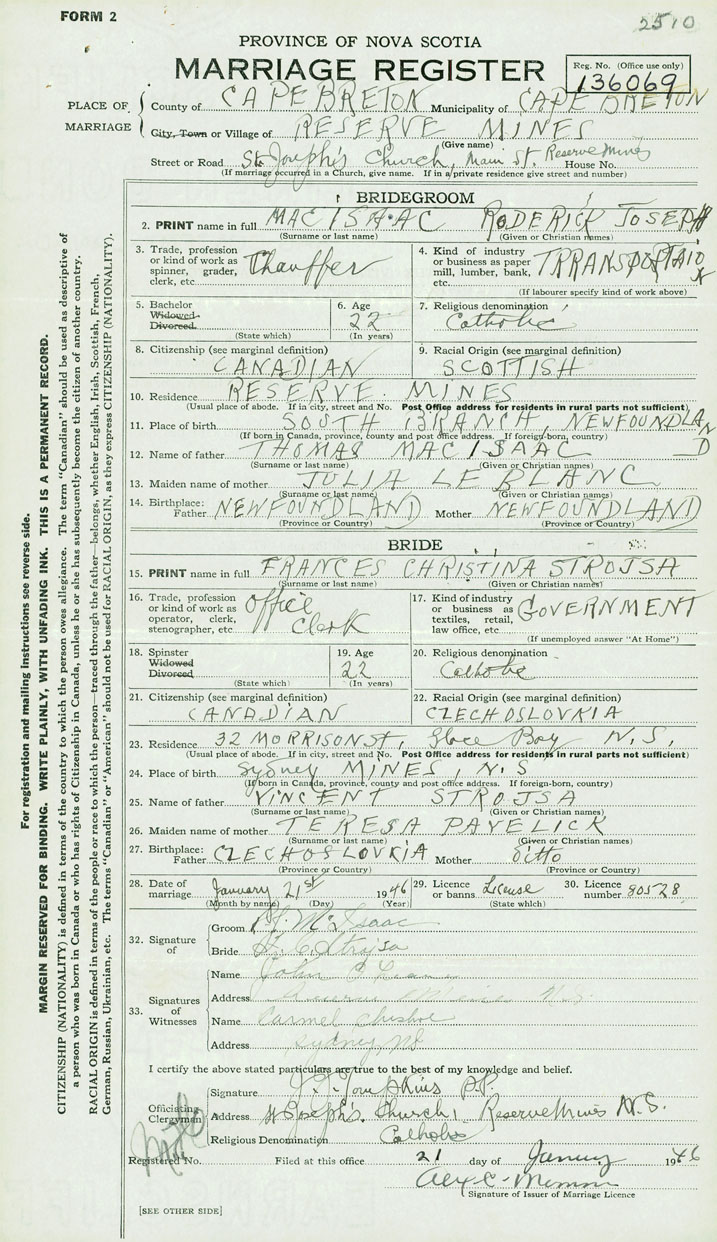 FORM 2
2510
PROVINCE OF NOVA SCOTIA
MARRIAGE REGISTER
Reg. No. (Office use only)
136069
PLACE OF MARRIAGE
County of CAPE BRETON Municipality of CAPE BRETON
City, Town or Village of RESERVE MINES
(Give name)
Street or Road St. Joseph's Church, Main St. Reserve Mines House No.
(If marriage occurred in a Church, give name. If in a private residence give street and number)
BRIDEGROOM
2. PRINT name in full MACISAAC RODERICK JOSEPH
(Surname or last name) (Given or Christian names)
3. Trade, profession or kind of work as spinner, grader, clerk, etc. Chauffer
4. Kind of industry or business as paper mill, lumber, bank, etc. TRRANSPORTAION
(If labourer specify kind of work above)
5. Bachelor Widowed Divorced (State which)
6. Age 22 (In years)
7. Religious denomination Catholic
8. Citizenship (see marginal definition) CANADIAN
9. Racial Origin (see marginal definition) SCOTTISH
10. Residence RESERVE MINES
(Usual place of abode. If in city, street and No. Post Office address for residents in rural parts not sufficient)
11. Place of birth SOUTH BRANCH, NEWFOUNDLAND
(If born in Canada, province, county and post office address. If foreign-born, country)
12. Name of father THOMAS MACISAAC
(Surname or last name) (Given or Christian names)
13. Maiden name of mother JULIA LE BLANC
(Surname or last name) (Given or Christian names)
14. Birthplace: Father NEWFOUNDLAND Mother NEWFOUNDLAND
(Province or Country) (Province or Country)
BRIDE
15. PRINT name in full FRANCES CHRISTINA STROJSA
(Surname or last name) (Given or Christian names)
16. Trade, profession or kind of work as operator, clerk, stenographer, etc. Office Clerk
17. Kind of industry or business as textiles, retail, law office, etc. GOVERNMENT
(If unemployed answer "At Home")
18. Spinster Widowed Divorced (State which)
19. Age 22 (In years)
20. Religious denomination Catholic
21. Citizenship (see marginal definition) CANADIAN
22. Racial Origin (see marginal definition) CZECHOSLOVKIA
23. Residence 32 MORRISON ST, Glace Bay N.S.
(Usual place of abode. If in city, street and No. Post Office address for residents in rural parts not sufficient)
24. Place of birth Sydney MINES, N.S
(If born in Canada, province, county and post office address. If foreign-born, country)
25. Name of father VINCENT STROJSA
(Surname or last name) (Given or Christian names)
26. Maiden name of mother TERESA PAVELICK
(Surname or last name) (Given or Christian names)
27. Birthplace: Father CZECHOSLOVKIA Mother ditto
(Province or Country) (Province or Country)
28. Date of marriage January 21st 1946
(Month by name) (Day) (Year)
29. Licence or banns License (State which)
30. Licence number 80528
32. Signature of
Groom McIsaac
Bride Strojsa
33. Signatures of Witnesses
Name John
Address Mines N.S.
Name Carmel
Address Sydney
I certify the above stated particulars are true to the best of my knowledge and belief.
Officiating Clergyman
Signature J.J. Tompkins P.P.
Address St Joseph's Church, Reserve Mines N.S.
Religious Denomination Catholic
Registered No. Filed at this office 21 day of January 1946
Signature of Issuer of Marriage Licence
[SEE OTHER SIDE]
For registration and mailing instructions see reverse side.
MARGIN RESERVED FOR BINDING. WRITE PLAINLY, WITH UNFADING INK. THIS IS A PERMANENT RECORD.
CITIZENSHIP (NATIONALITY) is defined in terms of the country to which the person owes allegiance. The term "Canadian" should be used as descriptive of
a person who was born in Canada or who has rights of Citizenship in Canada, unless he or she has subsequently become the citizen of another country.
RACIAL ORIGIN is defined in terms of the people or race to which the person—traced through the father—belongs, whether English, Irish, Scottish, French,
German, Russian, Ukrainian, etc. The terms "Canadian" or "American" should not be used for RACIAL ORIGIN, as they express CITIZENSHIP (NATIONALITY).